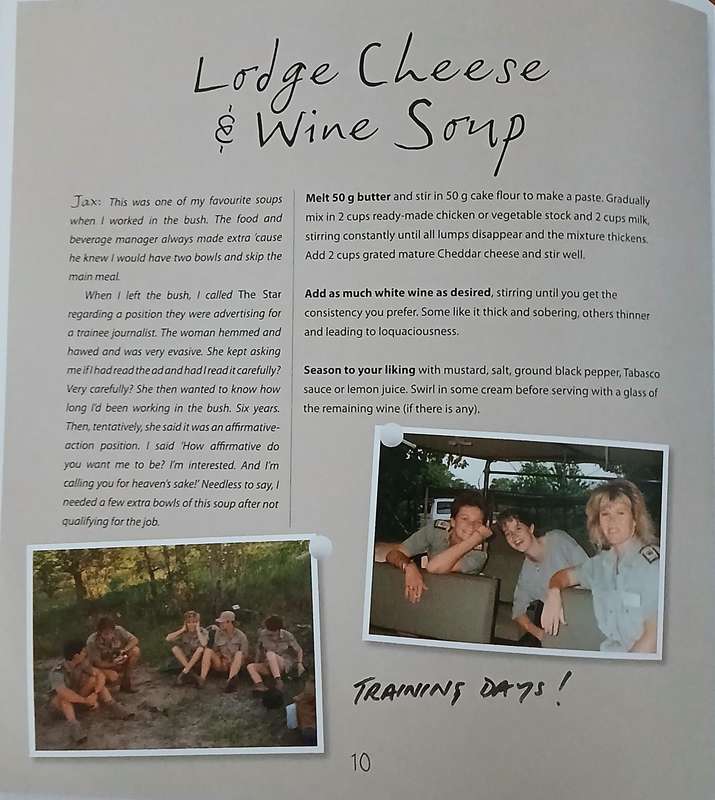 Lodge Cheese
& Wine Soup
Jax: This was one of my favourite soups
when I worked in the bush. The food and
beverage manager always made extra 'cause
he knew I would have two bowls and skip the
main meal.
When I left the bush, I called The Star
regarding a position they were advertising for
a trainee journalist. The woman hemmed and
hawed and was very evasive. She kept asking
me if I had read the ad and had I read it carefully?
Very carefully? She then wanted to know how
long I'd been working in the bush. Six years.
Then, tentatively, she said it was an affirmative-
action position. I said 'How affirmative do
you want me to be? I'm interested. And I'm
calling you for heaven's sake!' Needless to say, I
needed a few extra bowls of this soup after not
qualifying for the job.
Melt 50 g butter and stir in 50 g cake flour to make a paste. Gradually
mix in 2 cups ready-made chicken or vegetable stock and 2 cups milk,
stirring constantly until all lumps disappear and the mixture thickens.
Add 2 cups grated mature Cheddar cheese and stir well.
Add as much white wine as desired, stirring until you get the
consistency you prefer. Some like it thick and sobering, others thinner
and leading to loquaciousness.
Season to your liking with mustard, salt, ground black pepper, Tabasco
sauce or lemon juice. Swirl in some cream before serving with a glass of
the remaining wine (if there is any).
TRAINING DAYS!
10